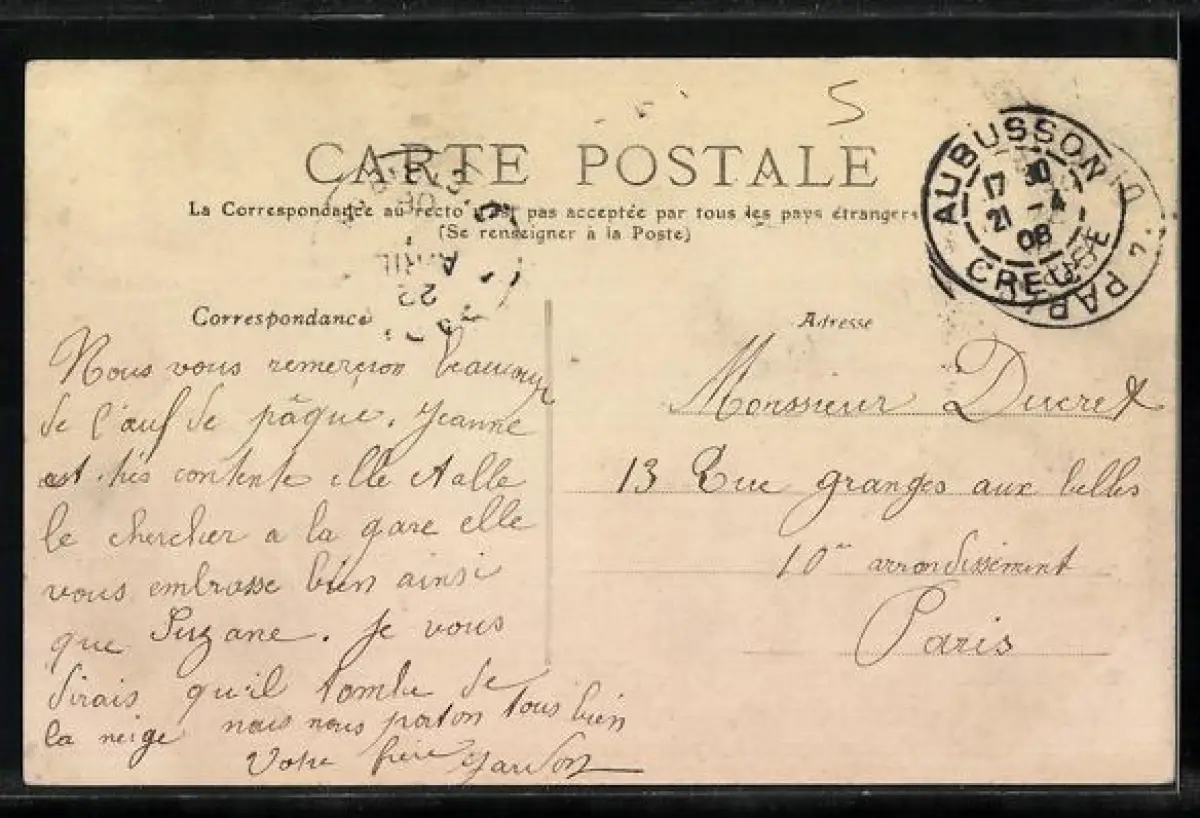 5
CARTE POSTALE
La Correspondance au recto n'est pas acceptée par tous les pays étrangers
(Se renseigner à la Poste)
AUBUSSON
17 30
21 -4
08
CREUSE
PARIS
AVRIL
22
Correspondance
Nous vous remerçion beaucoup
de l'œuf de pâque. Jeanne
est très contente elle et alle
le chercher a la gare elle
vous embrasse bien ainsi
que Suzane. Je vous
dirais qu'il tombe de
la neige nous nous porton tous bien
Votre frère
Adresse
Monssieur Ducret
13 Rue granges aux belles
10 arrondissement
Paris